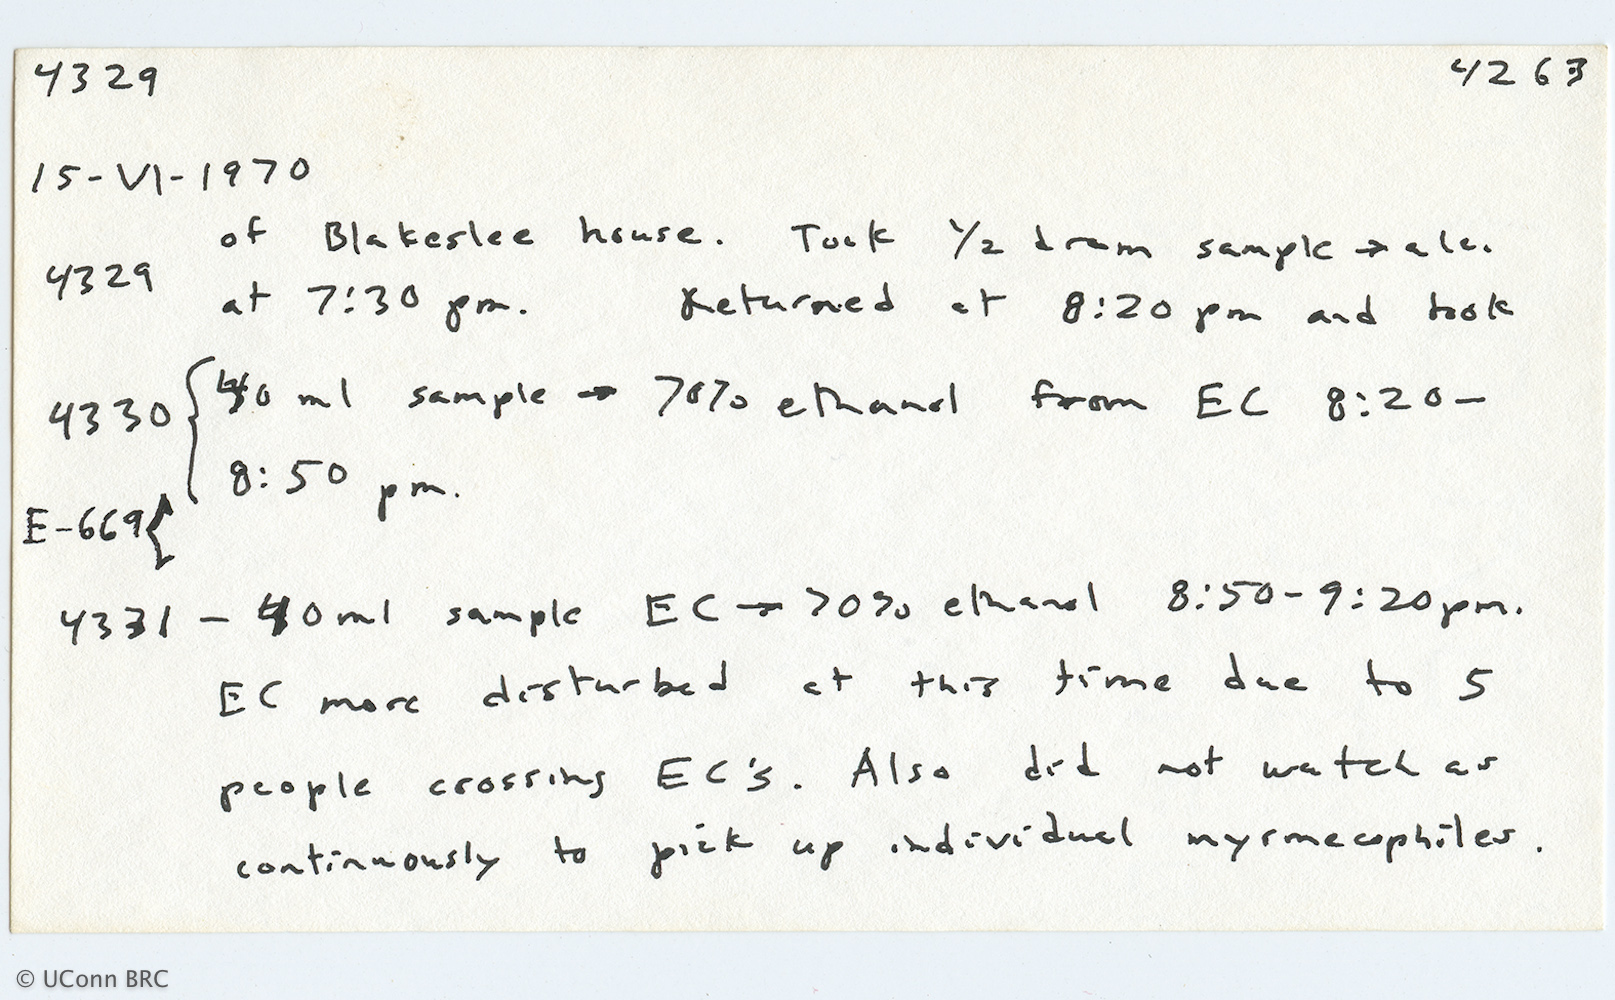 4329 4263
15-VI-1970
of Blakeslee house. Took 1/2 dram sample → alc.
4329 at 7:30 pm. Returned at 8:20 pm and took
4330 { 40 ml sample → 70% ethanol from EC 8:20-
8:50 pm.
E-669 {
4331 - 40 ml sample EC → 70% ethanol 8:50-9:20 pm.
EC more disturbed at this time due to 5
people crossing EC's. Also did not watch as
continuously to pick up individual myrmecophiles.
© UConn BRC